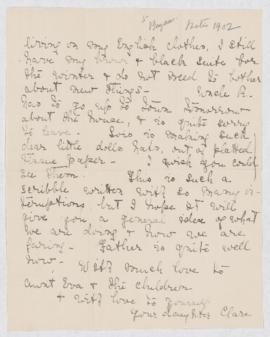 1902
living on my English clothes, I still
have my & black suits for
the winter & do not need to bother
about new things - Uncle
has to go up to town tomorrow
about the house, & so quite sorry
to leave. is making such
dear little dolls hats, out of plaited
tissue paper. - I wish you could
see them. This is such a
scribble written with so many in-
teruptions, but I hope it will
give you a general idea of what
we are doing & how we are
faring. Father is quite well
now. With much love to
Aunt Eva & the children
& with love to yourself
Your daughter Clare